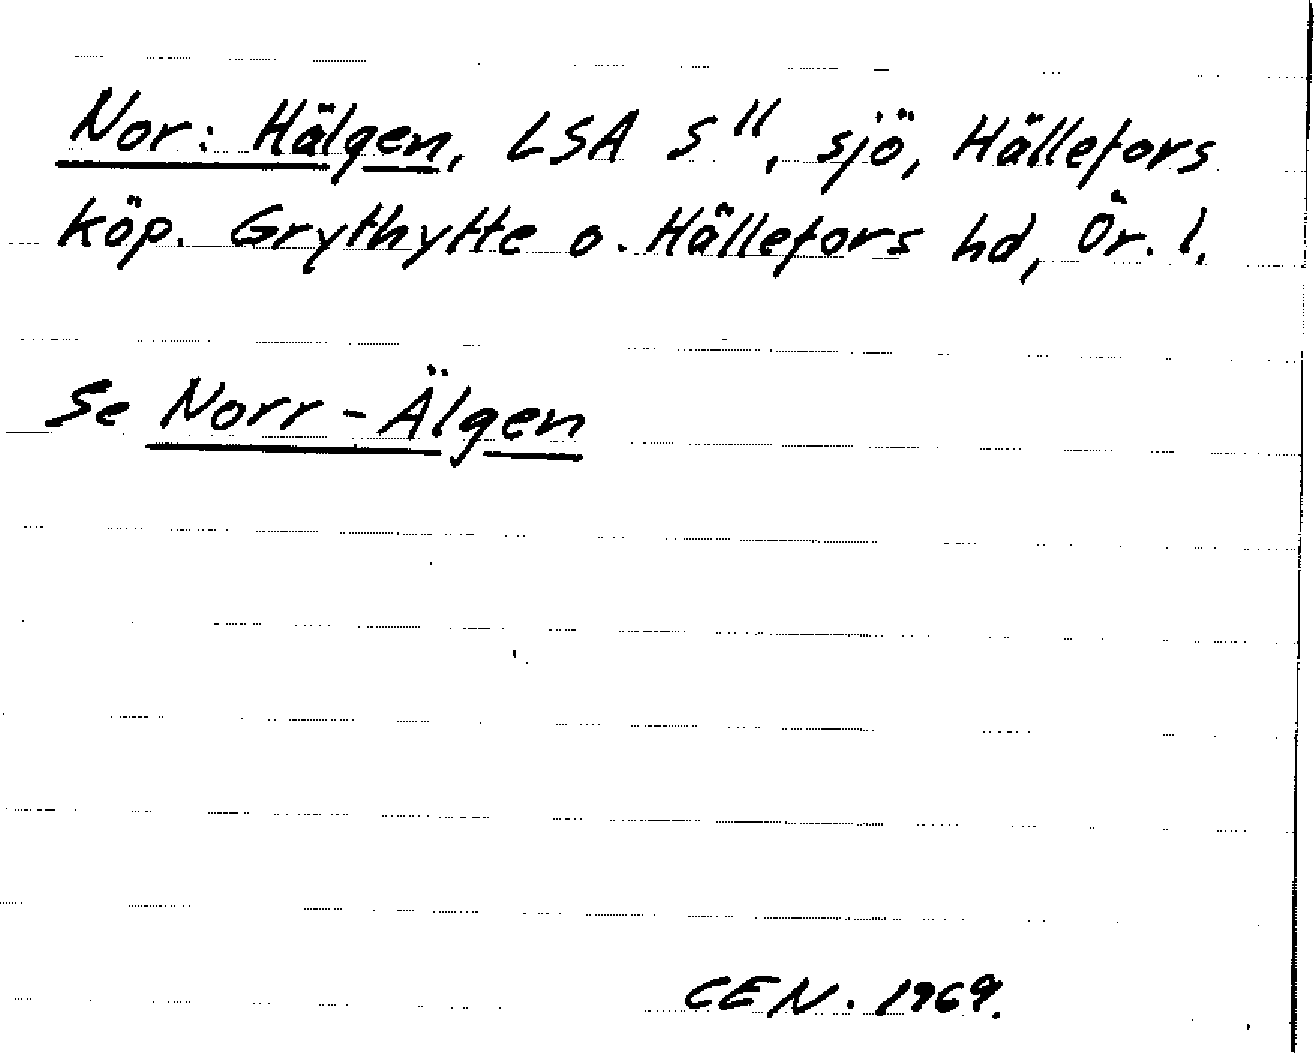 Nor: Hälgen, LSA S", sjö, Hällefors
köp. Grythytte o. Hällefors hd, Ör. l.
Se Norr-Älgen
CEN. 1969.